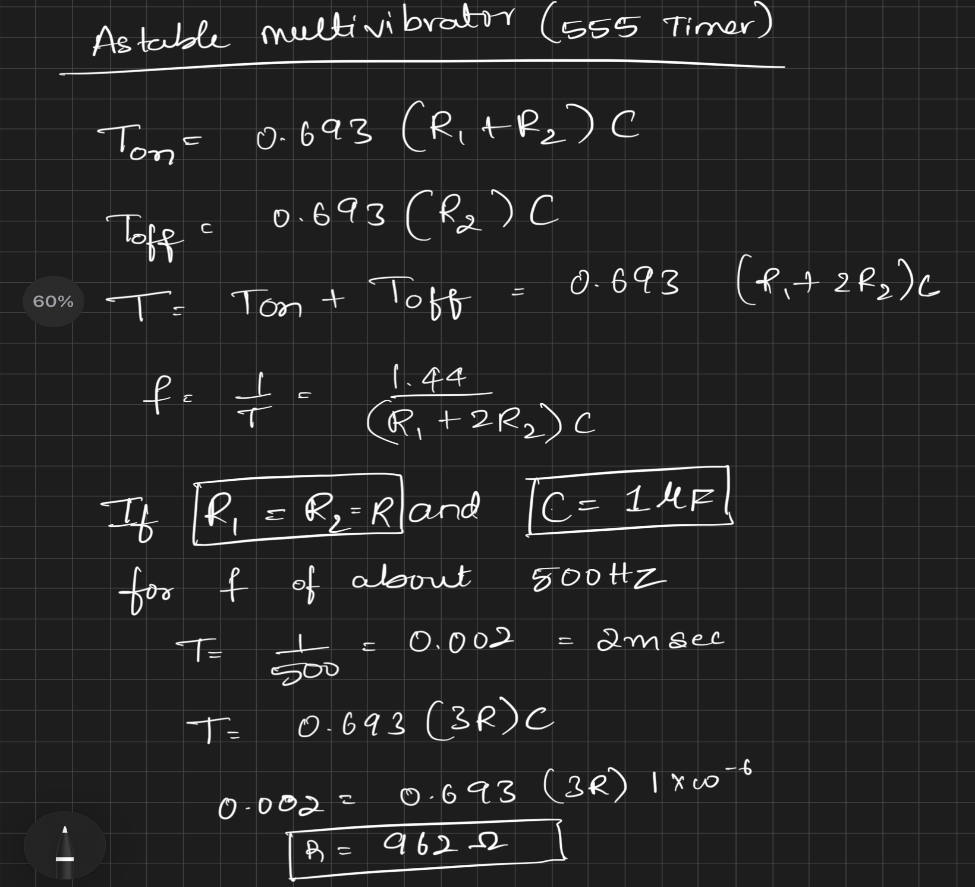 Astable multivibrator (555 Timer)
Ton = 0.693 (R₁ + R₂) C
Toff = 0.693 (R₂) C
60%
T = Ton + Toff = 0.693 (R₁ + 2R₂)C
f = 1/T = 1.44/(R₁ + 2R₂) C
If R₁ = R₂ = R and C = 1 μF
for f of about 500HZ
T = 1/500 = 0.002 = 2m sec
T = 0.693 (3R) C
0.002 = 0.693 (3R) 1 × 10⁻⁶
R = 962 Ω